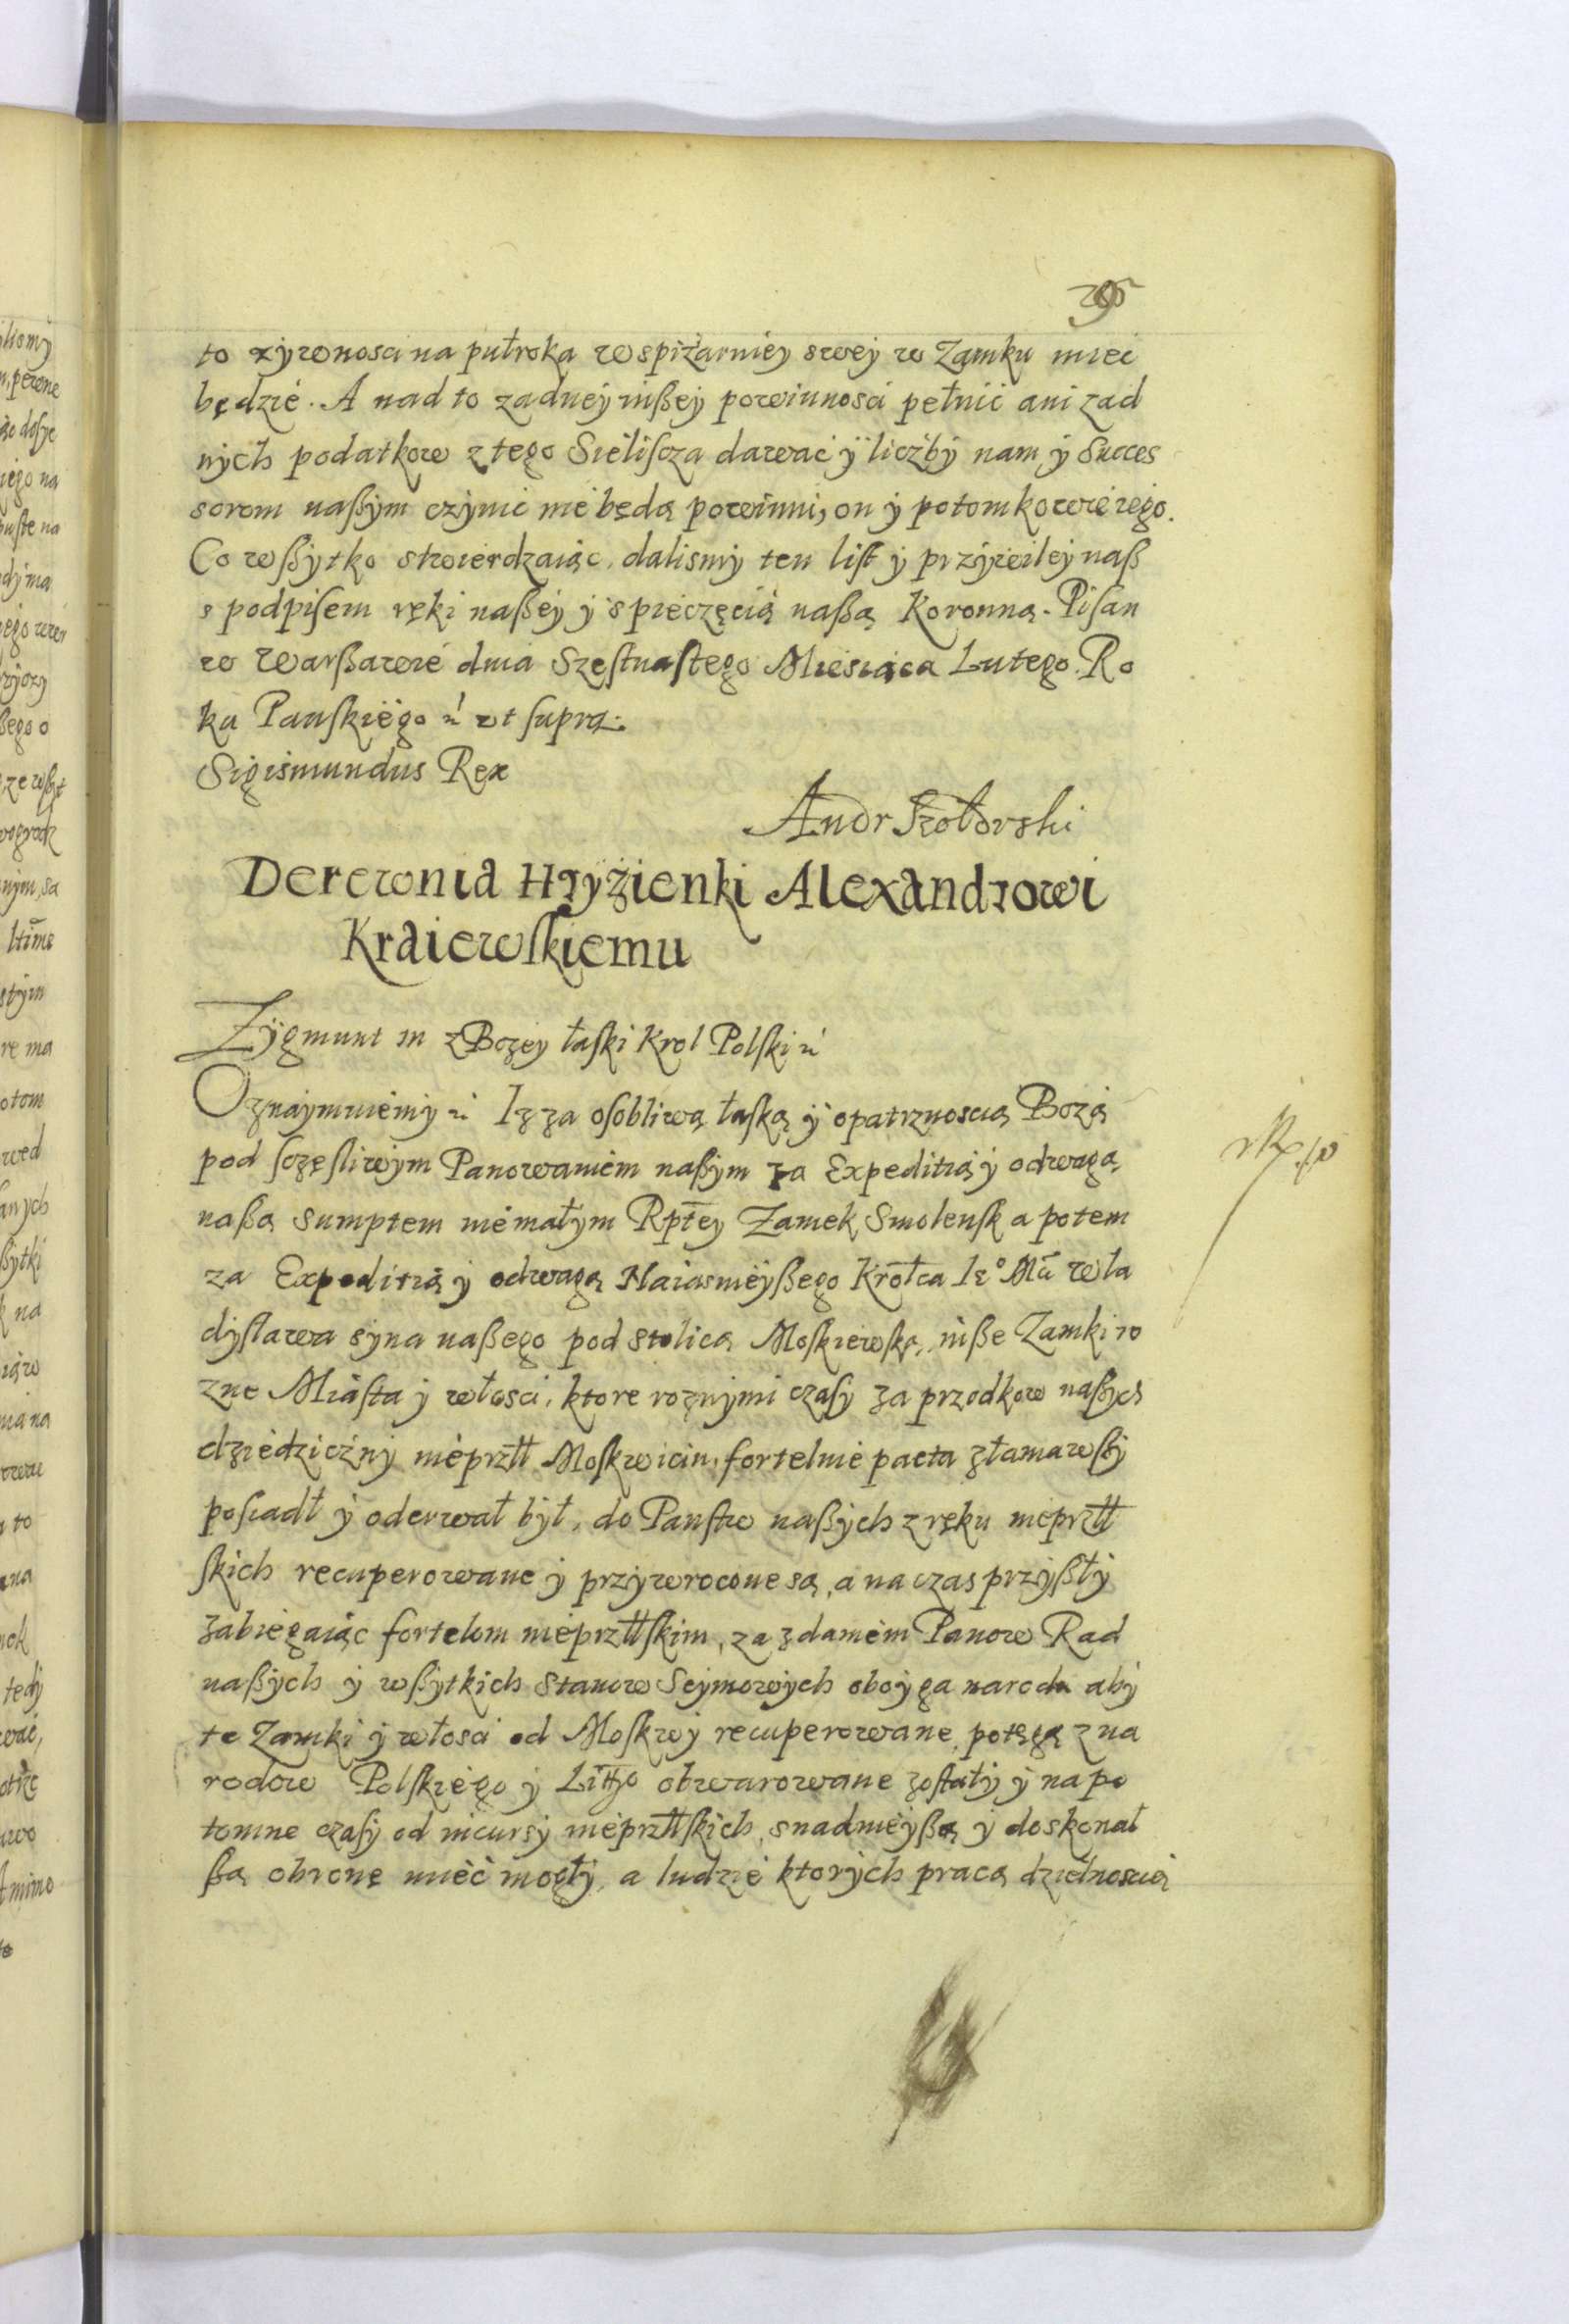 to zywnosci na pułroka w spiżarniey swey w Zamku miec
będzie. A nad to zadney inßey powinnosci pełnić ani zad
nych podatkow z tego Sieliscza dawać ÿ liczbÿ nam ÿ Succes
sorom naßÿm czÿnić nie będą powinni, on ÿ potomkowie iego.
Co wßÿtko stwierdzaiąc, dalismÿ ten list ÿ przÿwiley naß
s podpisem ręki naßeÿ ÿ s pieczęcią naßą Koronną. Pisan
w Warßawie dnia Szestnastego Miesiąca Lutego. Ro
ku Panskiego ut supra.
Sigismundus Rex
Andr Szołdrski
Derewnia Hryżienki Alexandrowi
Kraiewskiemu
Zÿgmunt III z Bozey łaski Krol Polski
Oznaymuiemÿ Iz za osobliwą łaską ÿ opatrznoscią Bozą
pod sczęsliwÿm Panowaniem naßÿm za Expeditią ÿ odwagą
naßą sumptem niemałÿm Rptey Zamek Smolensk a potem
za Expeditią ÿ odwagą Naiasnieÿßego Krolca Wła
dÿsława sÿna naßego pod stolicą Moskiewską, inße Zamki ro
zne Miasta ÿ włosci, ktore roznÿmi czasÿ za przodkow naßÿch
dziedzicznÿ nieprztł Moskwicin, fortelnie pacta złamawßÿ
posiadł ÿ oderwał bÿł, do Panstw naßÿch z ręku nieprztł
skich recuperowane ÿ przÿwrocone są, a na czas przÿßłÿ
zabiegaiąc fortelom nieprztłskim, za zdaniem Panow Rad
naßÿch ÿ wßÿtkich Stanow Seÿmowÿch oboÿga narodu abÿ
te Zamki ÿ włosci od Moskwÿ recuperowane, potęgą z na
rodow Polskiego ÿ Littgo obwarowane zostałÿ ÿ na po
tomne czasÿ od incursÿ nieprztłskich, snadnieÿßą ÿ doskonał
ßą obronę mieć mogłÿ, a ludzie ktorÿch pracą dzielnoscią